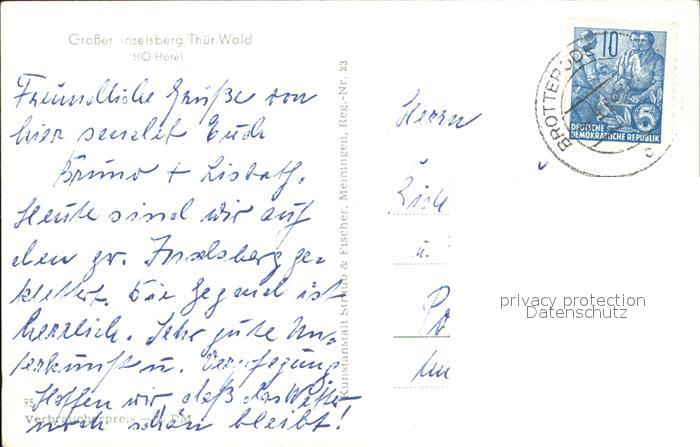 Großer Inselsberg/Thür. Wald
HO Hotel
Freundliche Grüße von
hier sendet Euch
Bruno + Lisbeth.
Heute sind wir auf
den gr. Inselsberg ge-
klettert. Die Gegend ist
herrlich. Sehr gute Un-
terkunft u. Verpflegung
Hoffen wir, daß das Wetter
noch schön bleibt!
Verbraucherpreis
DM
Kunstanstalt Straub & Fischer, Meiningen, Reg.-Nr. 23
Herrn
u.
BROTTERODE
c
10
6
DEUTSCHE
DEMOKRATISCHE REPUBLIK
privacy protection
Datenschutz